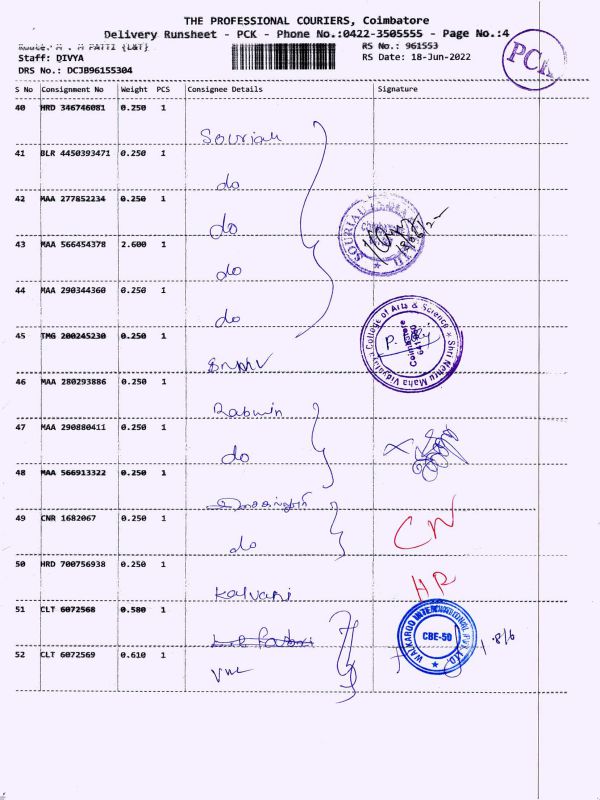 THE PROFESSIONAL COURIERS, Coimbatore
Delivery Runsheet - PCK - Phone No.:0422-3505555 - Page No.:4
RS No.: 961553
Staff: DIVYA
RS Date: 18-Jun-2022
DRS No.: DCJB96155304
PCK
S No Consignment No Weight PCS Consignee Details Signature
40 HRD 346746081 0.250 1
Souriau
41 BLR 4450393471 0.250 1
do
42 MAA 277852234 0.250 1
do
43 MAA 566454378 2.600 1
do
44 MAA 290344360 0.250 1
do
45 TMG 200245230 0.250 1
SNMV
Shri Nehru Maha Vidyalaya College of Arts & Science
Coimbatore
46 MAA 280293886 0.250 1
Rabwin
47 MAA 290880411 0.250 1
do
48 MAA 566913322 0.250 1
49 CNR 1682067 0.250 1
do
CN
50 HRD 700756938 0.250 1
Kalvani
HR
51 CLT 6072568 0.580 1
WALKAROO INTERNATIONAL PVT. LTD.
CBE-50
52 CLT 6072569 0.610 1